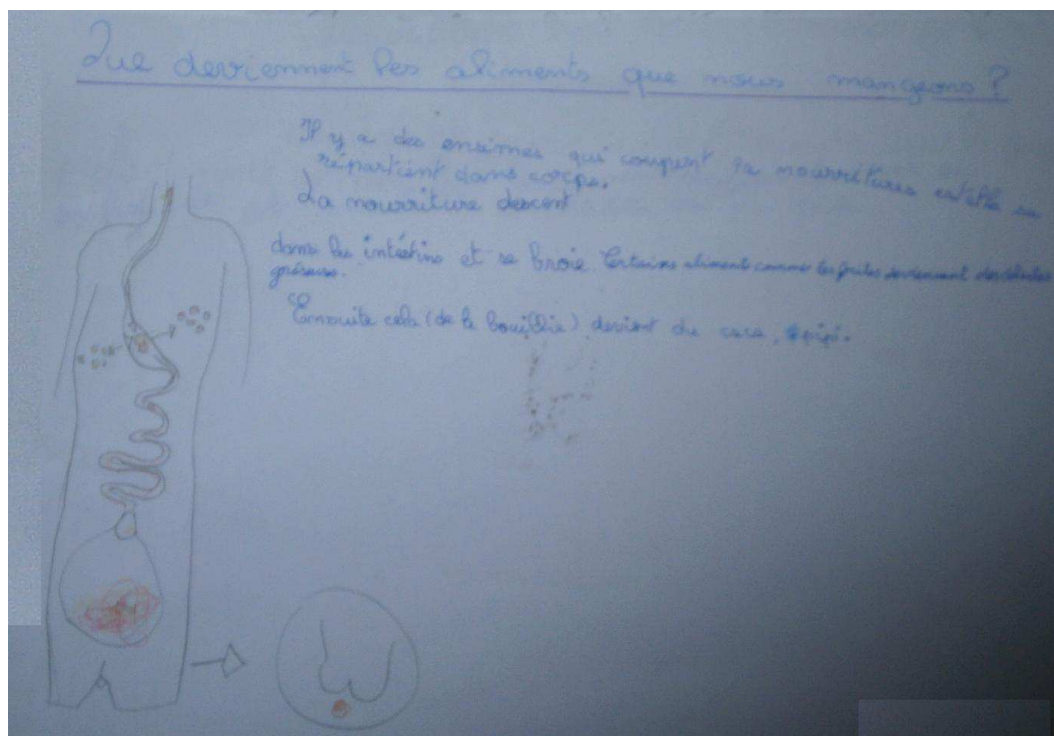 Que deviennent les aliments que nous mangeons ?
Il y a des ensimes qui coupent la nourritures et elle se
répartient dans corps.
La nourriture descent
dans les intéstins et se broie. Certains aliment comme les frites deviennent des
graisses.
Ensuite cela (de la bouillie) devient du caca, pipi.